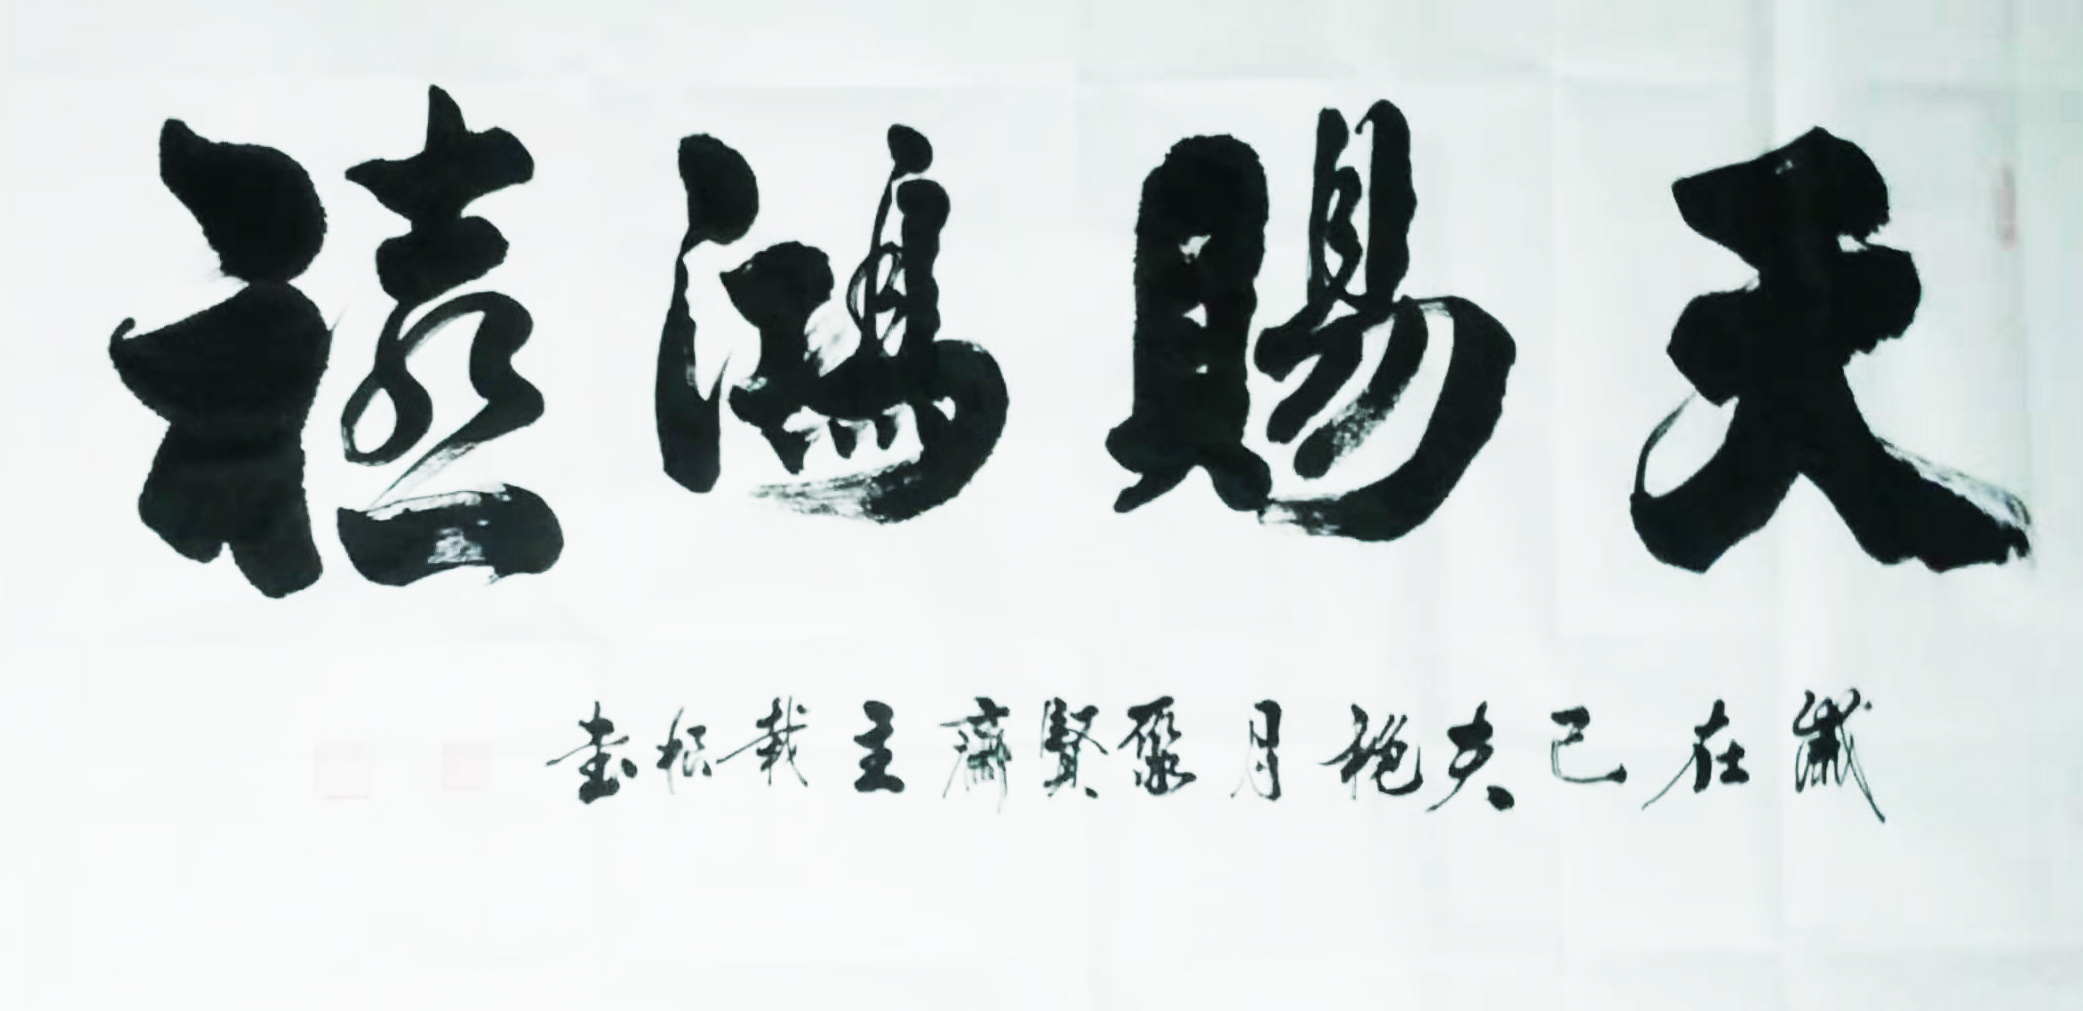 天賜鴻禧
歲在己亥桃月聚賢齋主栽根書